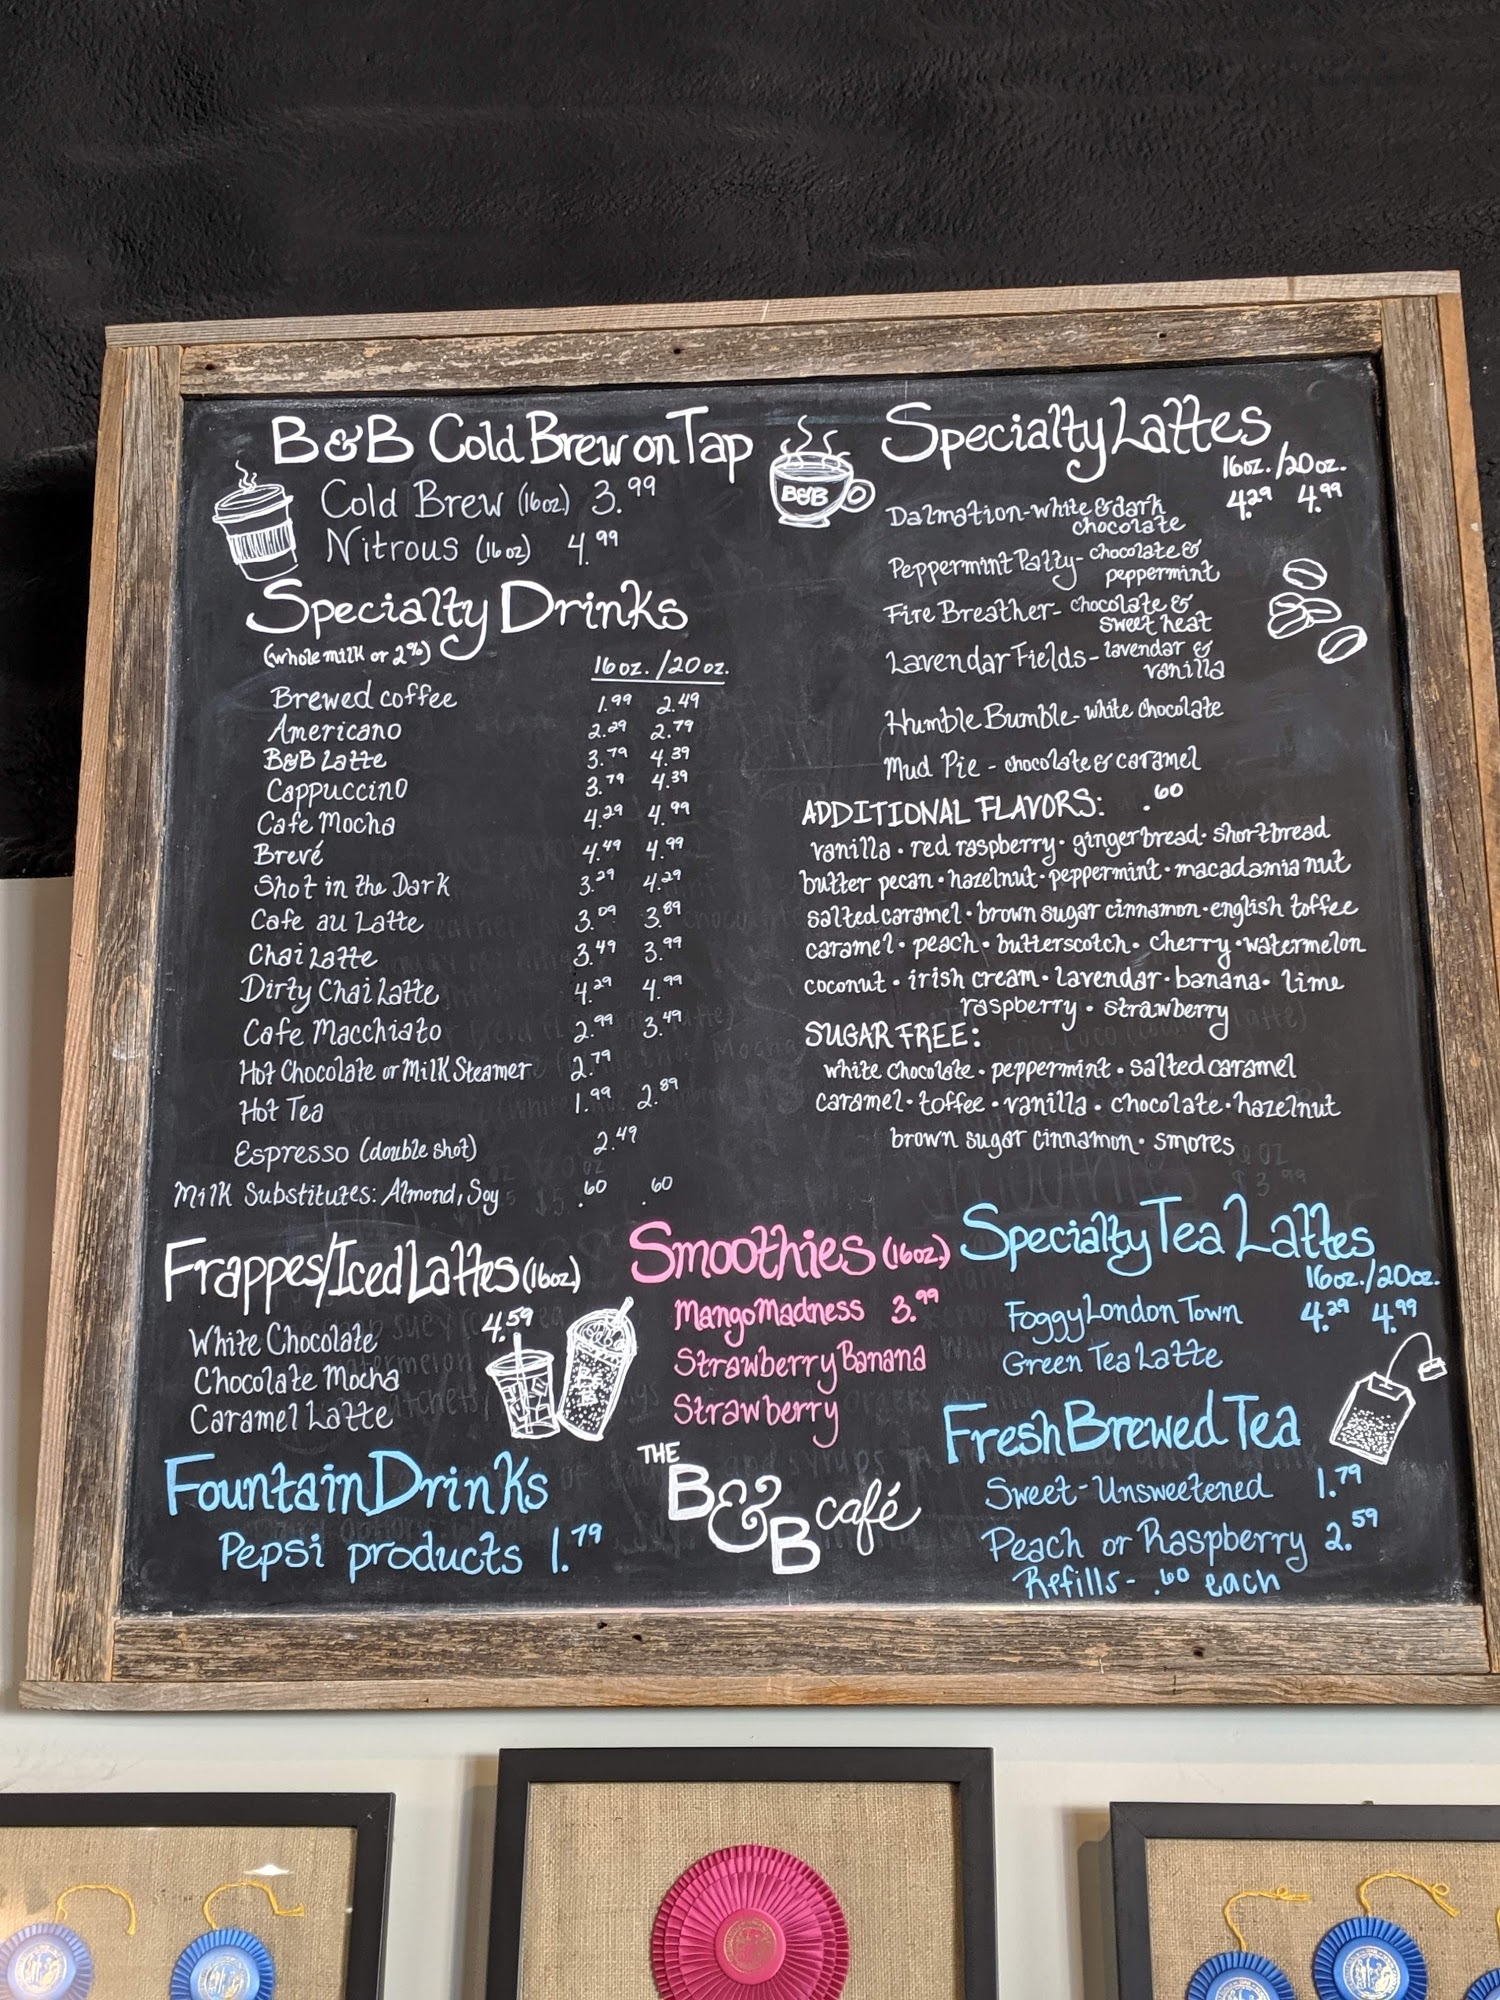 B&B Cold Brew on Tap
Cold Brew (16oz) 3.99
Nitrous (16oz) 4.99
Specialty Drinks
(whole milk or 2%)
16oz. / 20oz.
Brewed coffee 1.99 2.49
Americano 2.29 2.79
B&B Latte 3.79 4.39
Cappuccino 3.79 4.39
Cafe Mocha 4.29 4.99
Brevé 4.49 4.99
Shot in the Dark 3.29 4.29
Cafe au Latte 3.09 3.89
Chai Latte 3.49 3.99
Dirty Chai Latte 4.29 4.99
Cafe Macchiato 2.99 3.49
Hot Chocolate or Milk Steamer 2.79
Hot Tea 1.99 2.89
Espresso (double shot) 2.49
Milk Substitutes: Almond, Soy .60 .60
Frappes/Iced Lattes (16oz)
4.59
White Chocolate
Chocolate Mocha
Caramel Latte
Fountain Drinks
Pepsi products 1.79
B&B
Specialty Lattes
16oz. / 20oz.
4.29 4.99
Dalmation - white & dark
chocolate
Peppermint Patty - chocolate &
peppermint
Fire Breather - chocolate &
sweet heat
Lavendar Fields - lavendar &
vanilla
Humble Bumble - white chocolate
Mud Pie - chocolate & caramel
ADDITIONAL FLAVORS: .60
vanilla • red raspberry • gingerbread • shortbread
butter pecan • hazelnut • peppermint • macadamia nut
salted caramel • brown sugar cinnamon • english toffee
caramel • peach • butterscotch • cherry • watermelon
coconut • irish cream • lavendar • banana • lime
raspberry • strawberry
SUGAR FREE:
white chocolate • peppermint • salted caramel
caramel • toffee • vanilla • chocolate • hazelnut
brown sugar cinnamon • smores
Smoothies (16oz.)
Mango Madness 3.99
Strawberry Banana
Strawberry
THE
B&B café
Specialty Tea Lattes
16oz. / 20oz.
Foggy London Town 4.29 4.99
Green Tea Latte
Fresh Brewed Tea
Sweet - Unsweetened 1.79
Peach or Raspberry 2.59
Refills - .60 each